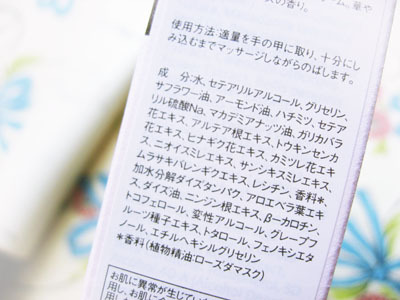 の香り。
使用方法:適量を手の甲に取り、十分にし
み込むまでマッサージしながらのばします。
成 分:水、セテアリルアルコール、グリセリン、
サフラワー油、アーモンド油、ハチミツ、セテア
リル硫酸Na、マカデミアナッツ油、ガリカバラ
花エキス、アルテア根エキス、トウキンセンカ
花エキス、ヒナギク花エキス、カミツレ花エキ
ス、ニオイスミレエキス、サンシキスミレエキス、
ムラサキバレンギクエキス、レシチン、香料*、
加水分解ダイズタンパク、アロエベラ葉エキ
ス、ダイズ油、ニンジン根エキス、β-カロチン、
トコフェロール、変性アルコール、グレープフ
ルーツ種子エキス、トタロール、フェノキシエタ
ノール、エチルヘキシルグリセリン
*香料(植物精油:ローズダマスク)
お肌に異常が生じてい
用し、お肌に